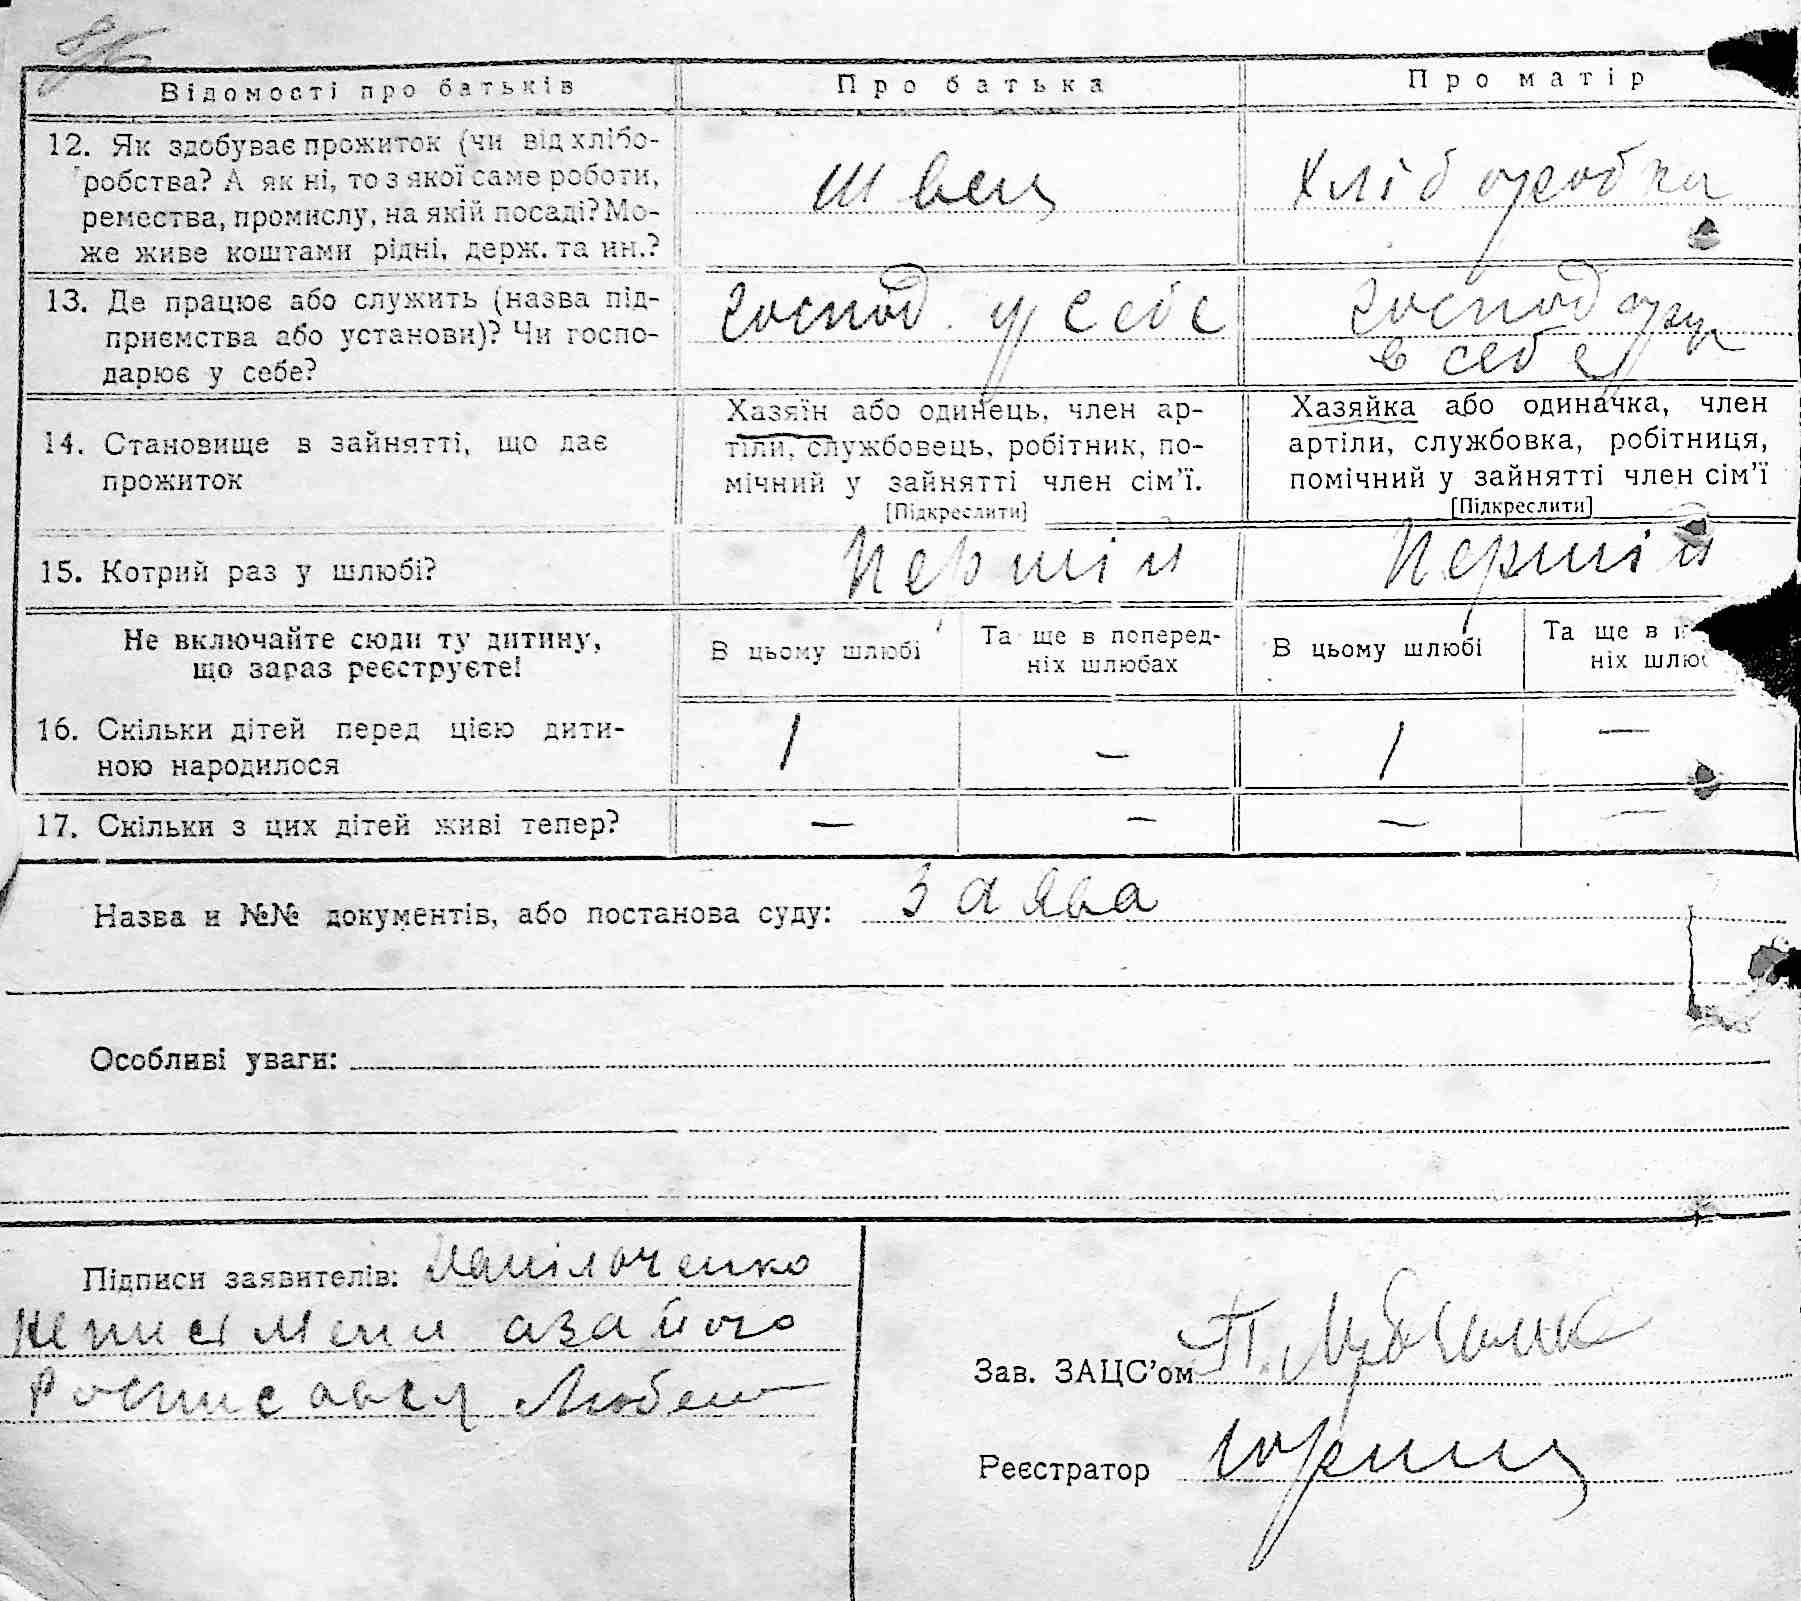 Відомості про батьків
Про батька
Про матір
12. Як здобуває прожиток (чи від хлібо-
робства? А як ні, то з якої саме роботи,
ремества, промислу, на якій посаді? Мо-
же живе коштами рідні, держ. та ин.?
швец
хліборобка
13. Де працює або служить (назва під-
приємства або установи)? Чи госпо-
дарює у себе?
господ. у себе
господарує
в себе
14. Становище в зайнятті, що дає
прожиток
Хазяїн або одинець, член ар-
тіли, службовець, робітник, по-
мічний у зайнятті член сім'ї.
[Підкреслити]
Хазяйка або одиначка, член
артіли, службовка, робітниця,
помічний у зайнятті член сім'ї
[Підкреслити]
15. Котрий раз у шлюбі?
Першій
Першій
Не включайте сюди ту дитину,
що зараз реєструєте!
В цьому шлюбі
Та ще в поперед-
ніх шлюбах
В цьому шлюбі
Та ще в
ніх
16. Скільки дітей перед цією дити-
ною народилося
1
—
1
—
17. Скільки з цих дітей живі тепер?
—
—
—
—
Назва и №№ документів, або постанова суду: заява
Особливі уваги:
Підписи заявителів: Данільченко
Неписімени азайого
Росписався
Зав. ЗАЦС'ом П.
Реєстратор